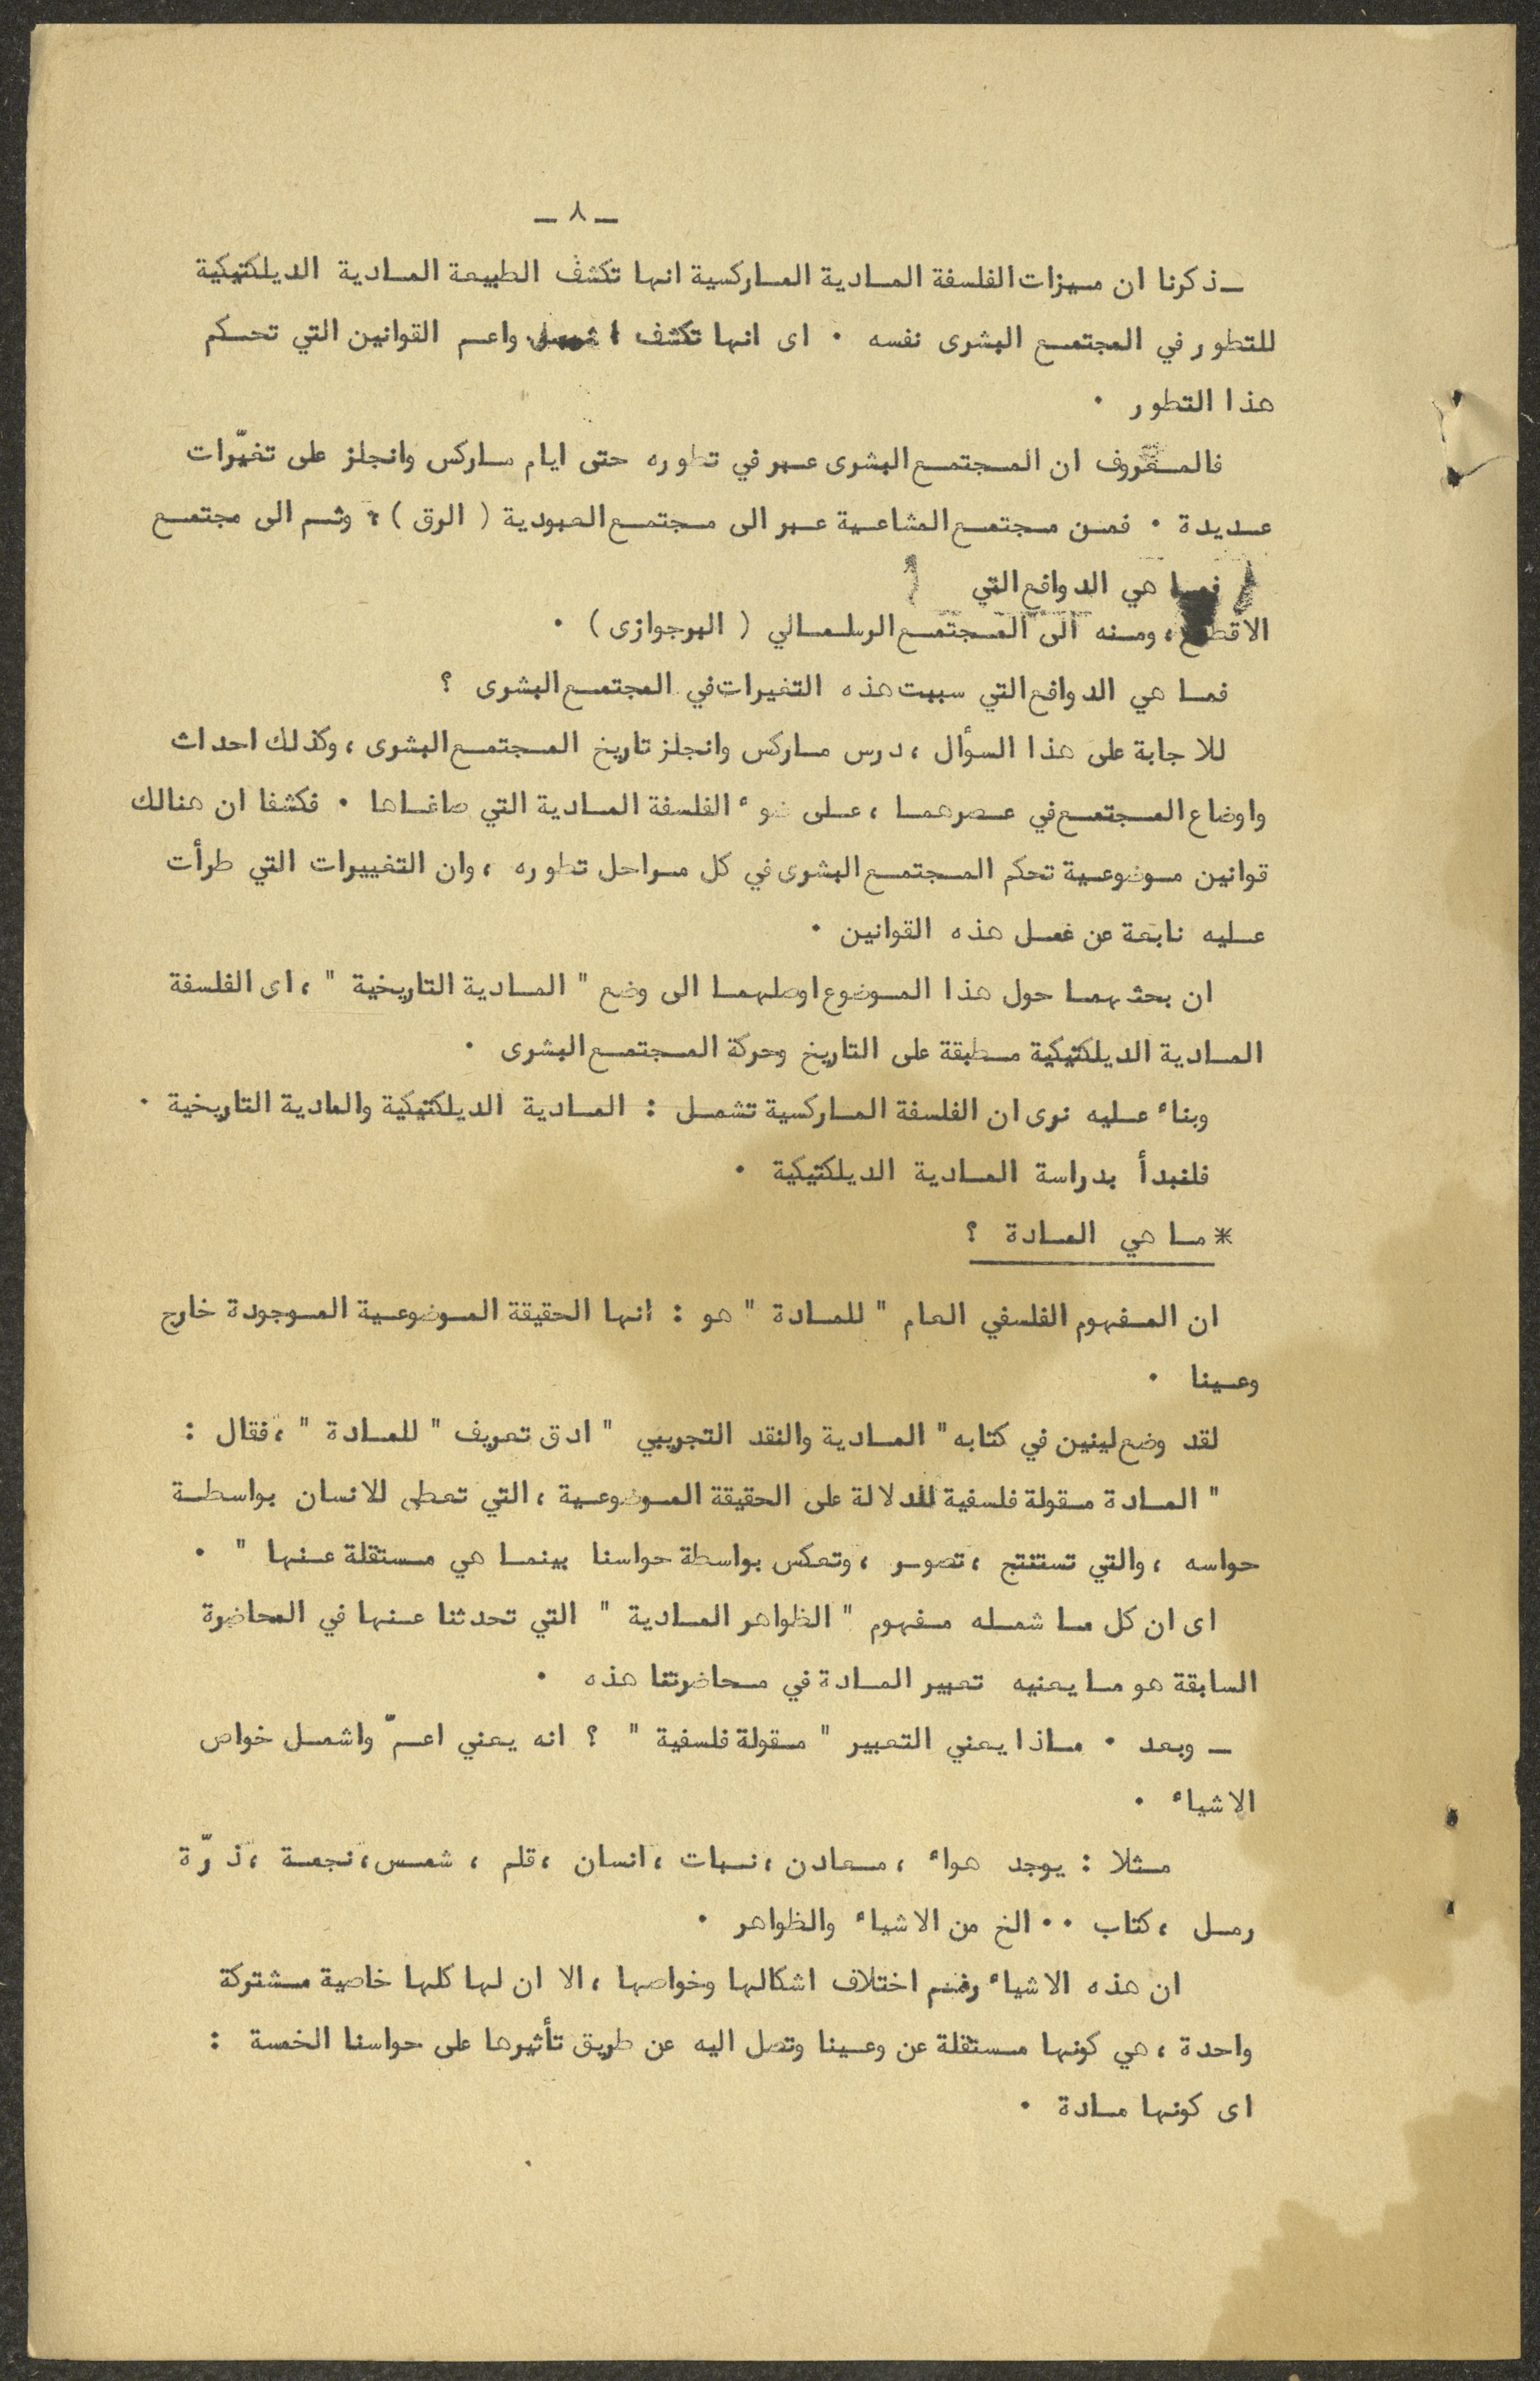 ـ ٨ ـ
ـ ذكرنا ان ميزات الفلسفة المادية الماركسية انها تكشف الطبيعة المادية الديلكتيكية
للتطور في المجتمع البشرى نفسه ٠ اى انها تكشف اشمل واعم القوانين التي تحكم
هذا التطور ٠
فالمعروف ان المجتمع البشرى عبر في تطوره حتى ايام ماركس وانجلز على تغيّرات
عديدة ٠ فمن مجتمع المشاعية عبر الى مجتمع العبودية ( الرق ) ، وثم الى مجتمع
فما هي الدوافع التي
الاقطاع ، ومنه الى المجتمع الرسلمالي ( البرجوازى ) ٠
فما هي الدوافع التي سببت هذه التغيرات في المجتمع البشرى ؟
للاجابة على هذا السؤال ، درس ماركس وانجلز تاريخ المجتمع البشرى ، وكذلك احداث
واوضاع المجتمع في عصرهما ، على ضوء الفلسفة المادية التي صاغاها ٠ فكشفا ان هنالك
قوانين موضوعية تحكم المجتمع البشرى في كل مراحل تطوره ، وان التغييرات التي طرأت
عليه نابعة عن فعل هذه القوانين ٠
ان بحثهما حول هذا الموضوع اوصلهما الى وضع " المادية التاريخية " ، اى الفلسفة
المادية الديلكتيكية مطبقة على التاريخ وحركة المجتمع البشرى ٠
وبناء عليه نرى ان الفلسفة الماركسية تشمل : المادية الديلكتيكية والمادية التاريخية ٠
فلنبدأ بدراسة المادية الديلكتيكية ٠
* ما هي المادة ؟
ان المفهوم الفلسفي العام " للمادة " هو : انها الحقيقة الموضوعية الموجودة خارج
وعينا ٠
لقد وضع لينين في كتابه " المادية والنقد التجريبي " ادق تعريف " للمادة " ، فقال :
" المادة مقولة فلسفية للدلالة على الحقيقة الموضوعية ، التي تعطى للانسان بواسطة
حواسه ، والتي تستنتج ، تصور ، وتعكس بواسطة حواسنا بينما هي مستقلة عنها " ٠
اى ان كل ما شمله مفهوم " الظواهر المادية " التي تحدثنا عنها في المحاضرة
السابقة هو ما يعنيه تعبير المادة في محاضرتنا هذه ٠
ـ وبعد ٠ ماذا يعني التعبير " مقولة فلسفية " ؟ انه يعني اعمّ واشمل خواص
الاشياء ٠
مثلا : يوجد هواء ، معادن ، نبات ، انسان ، قلم ، شمس ، نجمة ، ذرّة
رمل ، كتاب ٠٠ الخ من الاشياء والظواهر ٠
ان هذه الاشياء رغم اختلاف اشكالها وخواصها ، الا ان لها كلها خاصية مشتركة
واحدة ، هي كونها مستقلة عن وعينا وتصل اليه عن طريق تأثيرها على حواسنا الخمسة :
اى كونها مادة ٠